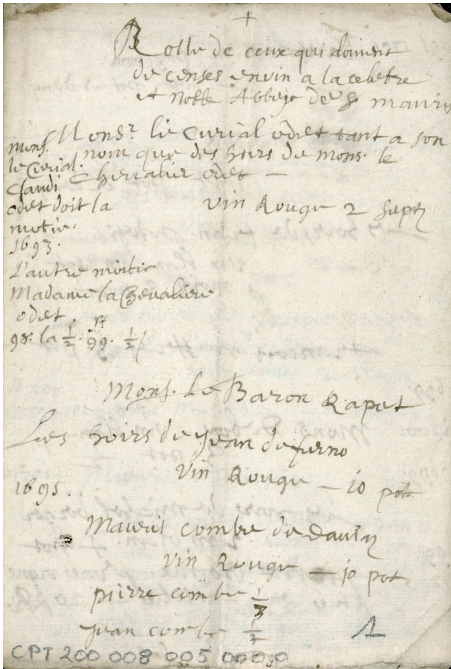 +
Rolle de ceux qui doivent
de censes en vin a la celebre
et Noble Abbeje de St mauris
Monsr le Curial odet tant a son
nom que des hoirs de Mons. le
Chevalier odet —
Vin Rouge 2 sept
mons.
le Curial
Claudi
odet doit la
motie.
1693.
L'autre moitie
Madame la Chevaliere
odet.
98. la ½. 99. ½
Mons. le Baron Rapet
Les hoirs de Jean de ferno
Vin Rouge — 10 pot
1695.
Mauris Combe de
Vin Rouge — 10 pot
pierre combe
Jean combe
1
CPT 200 008 005 000,0